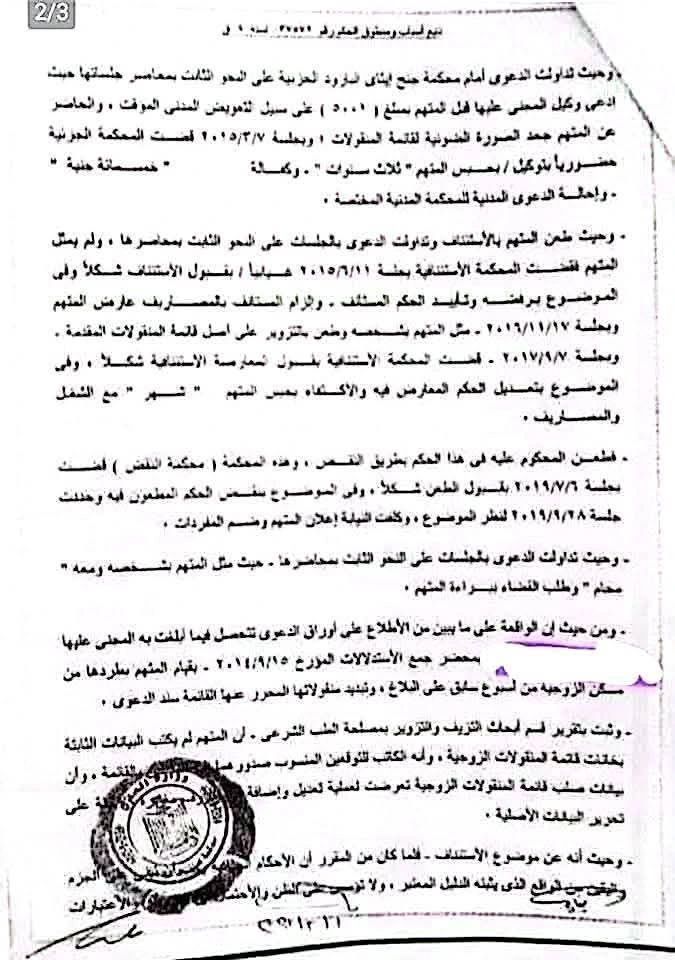 2/3
تابع أسباب ومنطوق الحكم رقم ٢٧٥٧٩ لسنة ٩ ق
- وحيث تداولت الدعوى أمام محكمة جنح إيتاى البارود الجزئية على النحو الثابت بمحاضر جلساتها حيث
ادعى وكيل المجنى عليها قبل المتهم بمبلغ ( ٥٠٠١ ) على سبيل التعويض المدنى الموقت ، والحاضر
عن المتهم جحد الصورة الضوئية لقائمة المنقولات ، وبجلسة ٢٠١٥/٣/٧ قضت المحكمة الجزئية
حضورياً بتوكيل / بحبس المتهم " ثلاث سنوات " - وكفالة " خمسمائة جنية "
- وإحالة الدعوى المدنية للمحكمة المدنية المختصة .
- وحيث طعن المتهم بالأستئناف وتداولت الدعوى بالجلسات على النحو الثابت بمحاضرها ، ولم يمثل
المتهم فقضت المحكمة الأستئنافية بجلسة ٢٠١٥/٦/١١ غيابياً / بقبول الأستئناف شكلاً وفى
الموضوع برفضه وتأييد الحكم المستأنف - وإلزام المستانف بالمصاريف عارض المتهم
وبجلسة ٢٠١٦/١١/١٧ - مثل المتهم بشخصه وطعن بالتزوير على أصل قائمة المنقولات المقدمة .
وبجلسة ٢٠١٧/٩/٧ - قضت المحكمة الأستئنافية بقبول المعارضة الأستئنافية شكلاً ، وفى
الموضوع بتعديل الحكم المعارض فيه والأكتفاء بحبس المتهم " شهر " مع الشغل
والمصاريف .
- فطعن المحكوم عليه فى هذا الحكم بطريق النقض ، وهذه المحكمة ( محكمة النقض ) قضت
بجلسة ٢٠١٩/٧/٦ بقبول الطعن شكلاً ، وفى الموضوع بنقض الحكم المطعون فيه وحددت
جلسة ٢٠١٩/٩/٢٨ لنظر الموضوع ، وكلفت النيابة إعلان المتهم وضم المفردات .
- وحيث تداولت الدعوى بالجلسات على النحو الثابت بمحاضرها - حيث مثل المتهم بشخصه ومعه "
محام " وطلب القضاء ببراءة المتهم .
- ومن حيث إن الواقعة على ما يبين من الأطلاع على أوراق الدعوى تتحصل فيما أبلغت به المجنى عليها
بمحضر جمع الأستدلالات المؤرخ ٢٠١٤/٩/١٥ - بقيام المتهم بطردها من
مسكن الزوجية من أسبوع سابق على البلاغ ، وتبديد منقولاتها المحرر عنها القائمة سند الدعوى .
- وثبت بتقرير قسم أبحاث التزيف والتزوير بمصلحة الطب الشرعى - أن المتهم لم يكتب البيانات الثابتة
بخانات قائمة المنقولات الزوجية ، وأنه الكاتب للتوقعين المنسوب صدورهما بالقائمة ، وأن
بيانات صلب قائمة المنقولات الزوجية تعرضت لعملية تعديل وإضافة على
تحرير البيانات الأصلية .
- وحيث أنه عن موضوع الأستئناف - فلما كان من المقرر أن الأحكام الجزم
واليقين من الواقع الذي يثبته الدليل المعتبر ، ولا تؤسس على الظن والأحتمال والأعتبارات
وزارة العدل